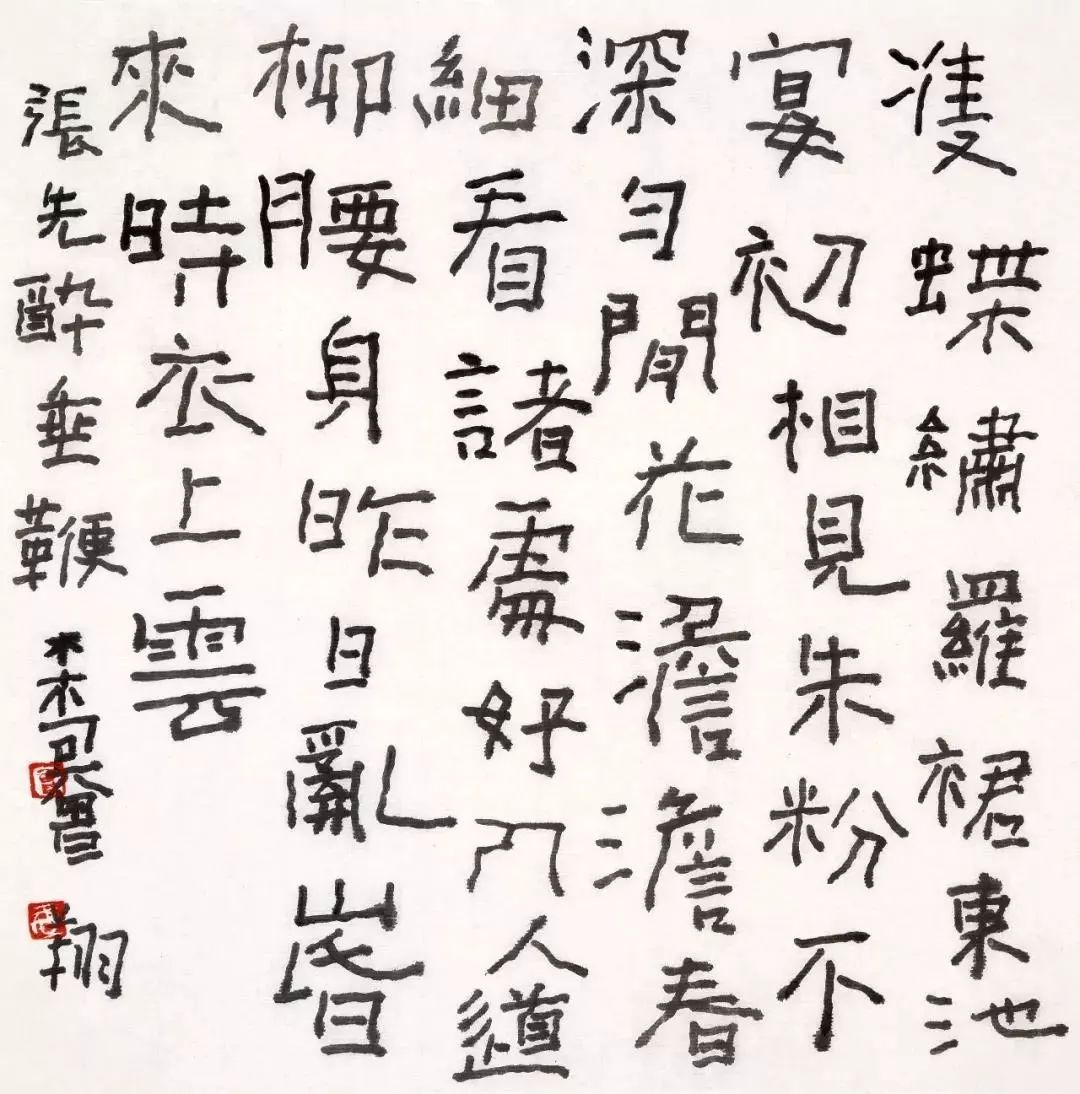 隻蝶繡羅裙東池
宴初相見朱粉不
深勻閒花澹澹春
細看諸處好人人道
柳腰身昨日亂山昏
來時衣上雲
張先醉垂鞭 曾翔